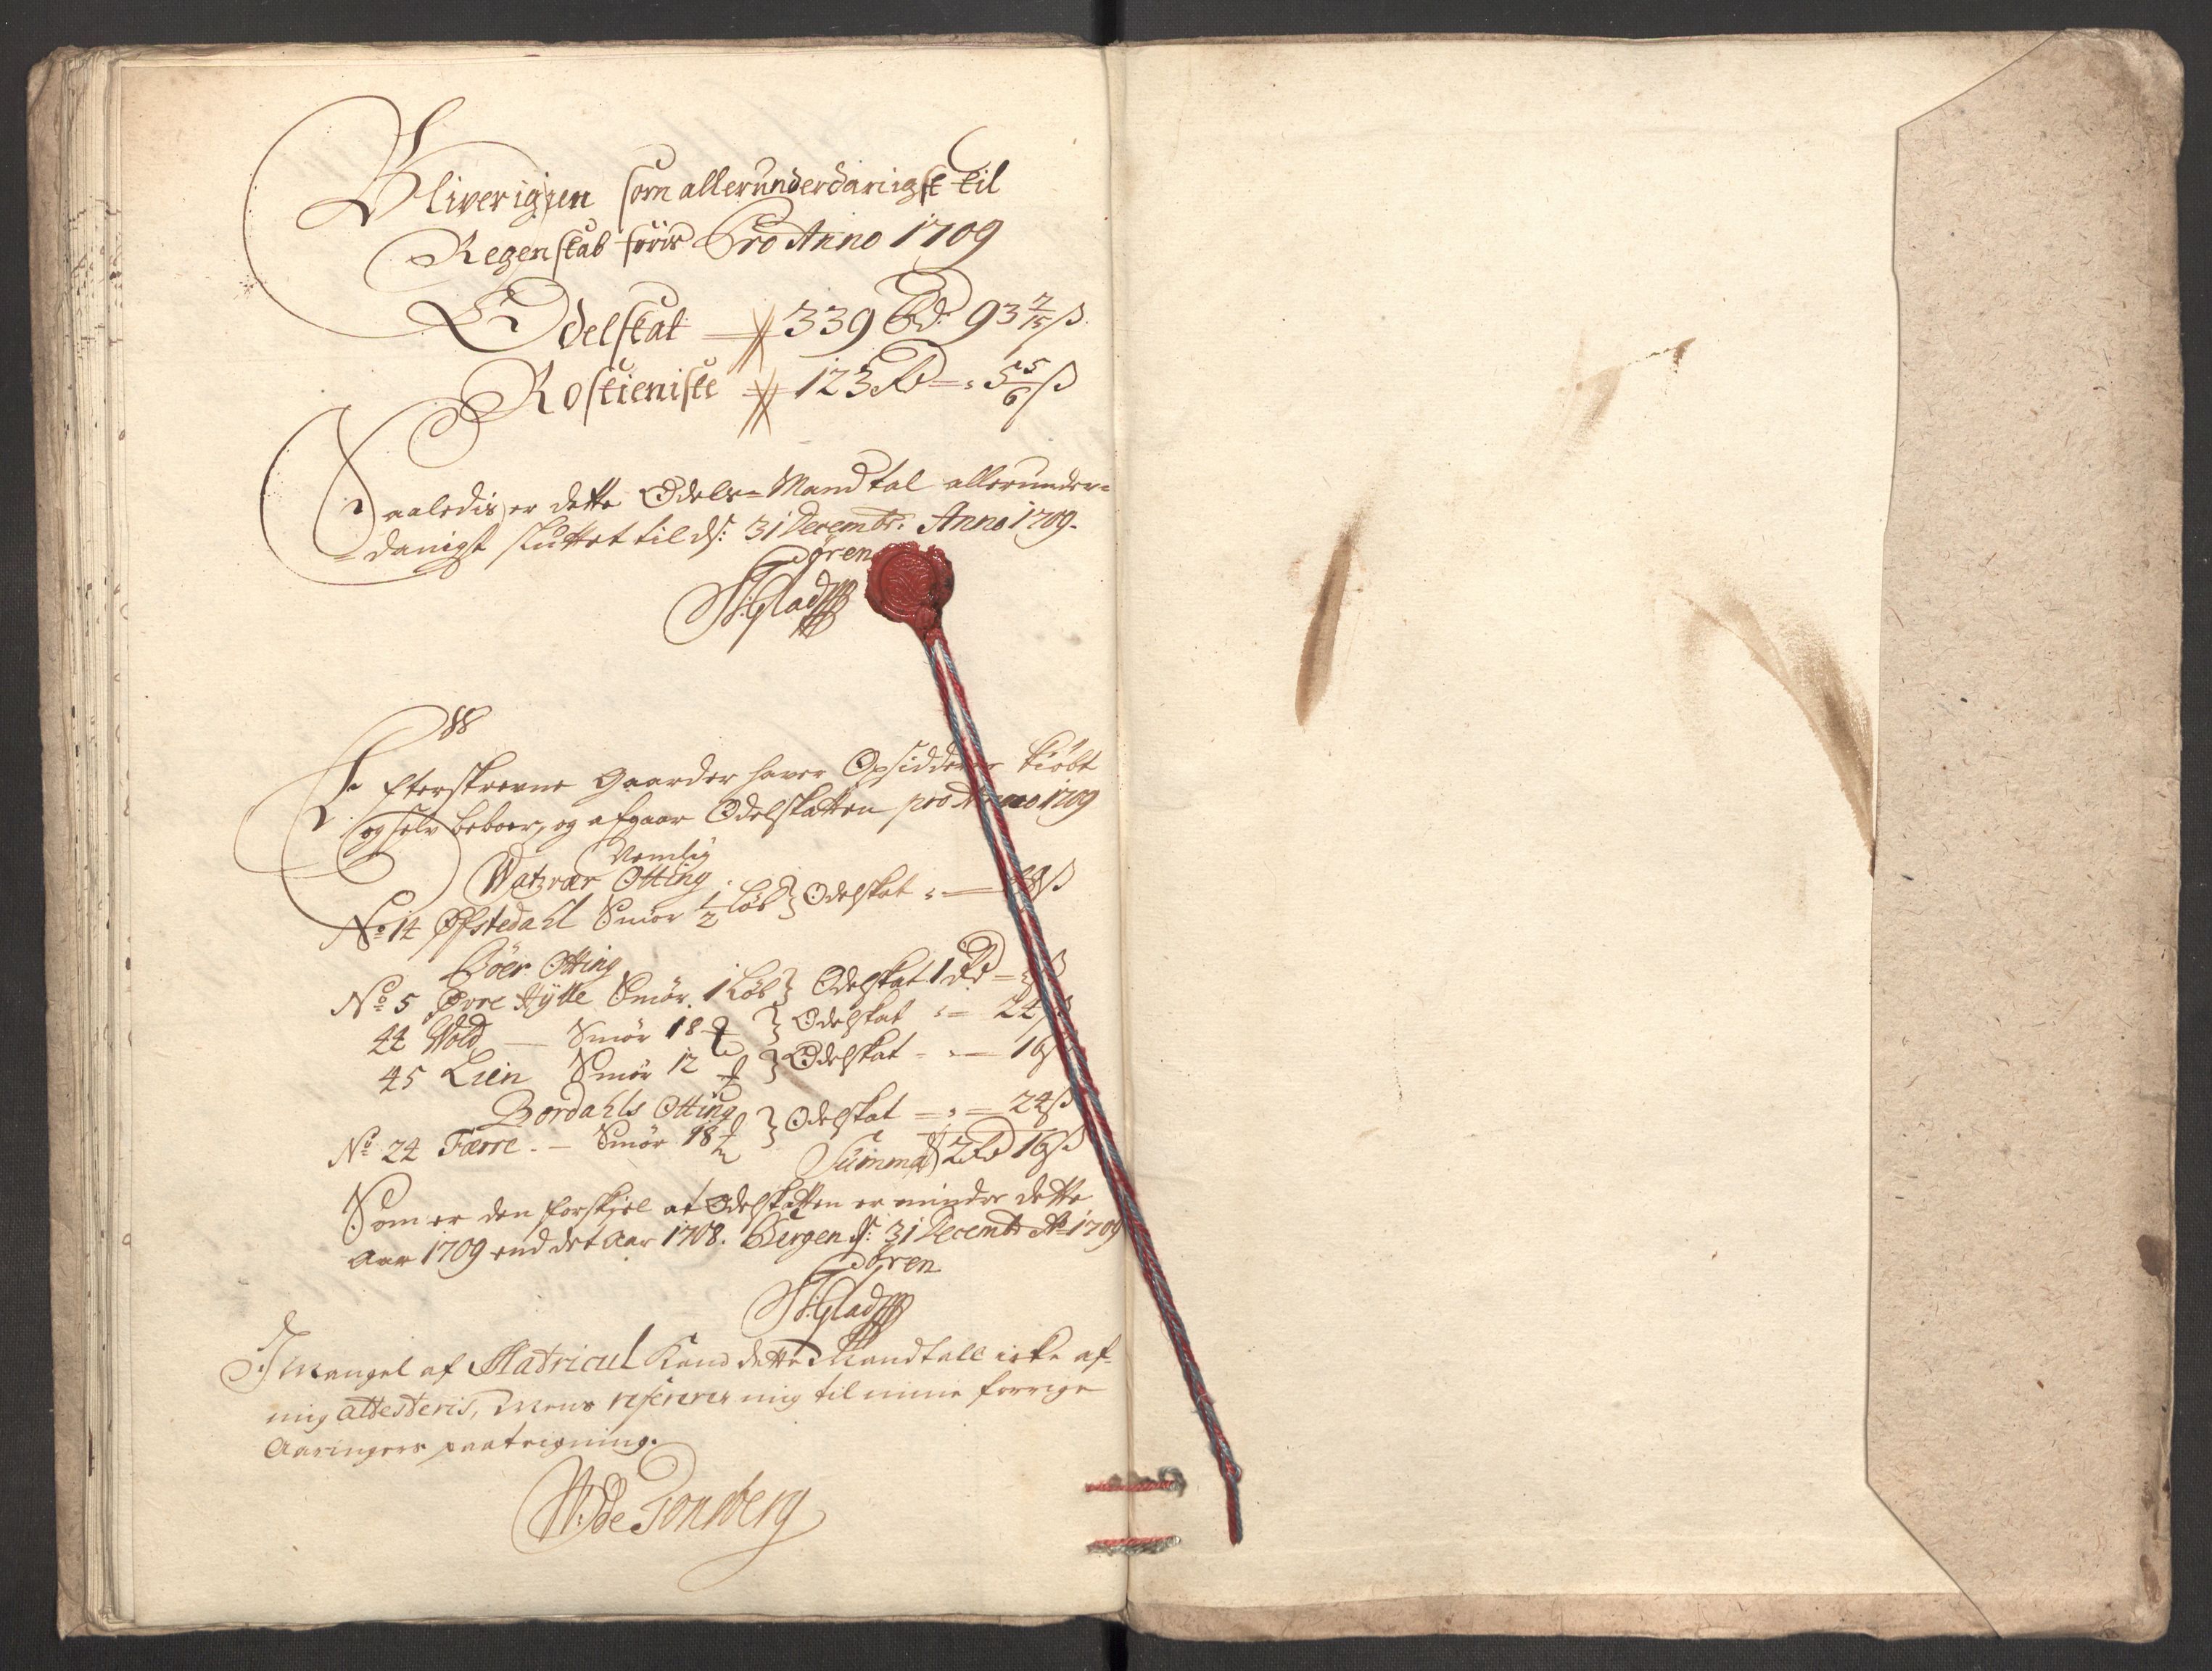 Bliver igien som allerunderdanigst til
Regenskab föris Pro Anno 1709
Odelskat 339 Rd: 93 2/15 ß
Rostieniste 123 Rd - : 5 5/6 ß
Saaledis er dette Odels-Mandtal allerunder-
danigst sluttet til ds: 31 Decembr: Anno 1709.
Sören
St: Glad
Efterskrevne Gaarder haver Opsidderne kiöbt
og selv beboer, og afgaar Odelskatten pro Anno 1709
Nemlig
Watzvær Otting
No 14 Øfstedahl Smör 1/2 Löb } Odelskat : — 48 ß
Böer Otting
No 5 Øvre Hÿlle Smör 1 Löb } Odelskat 1 Rd - : ß
44 Wold — Smör 18 } Odelskat : = 24 ß
45 Lien Smör 12 } Odelskat - : — 16 ß
Bordahls Otting
No 24 Færre. — Smör 18 } Odelskat = : = 24 ß
Summa 2 Rd 16 ß
Som er den forskiel at Odelskatten er mindre dette
Aar 1709 end det Aar 1708. Bergen ds: 31 Decembr Ao 1709
Sören
St: Glad
I Mangel af Matricul Kand dette Mandtall icke af
mig attesteris, Mens refererer mig til mine forrige
Aaringers paategning.
W: de Tonsberg